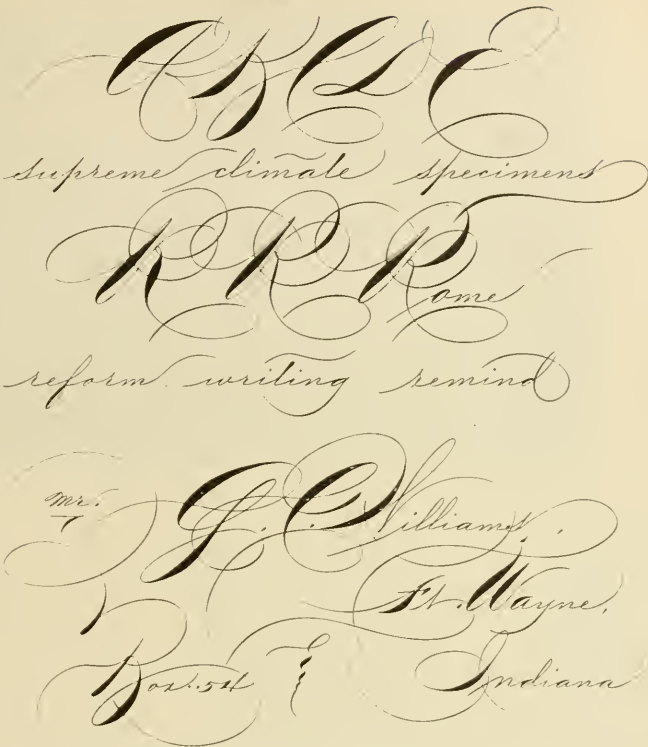 A B C D E
supreme climate specimens
R R Rome
reform writing remind
Mr. G. C. Williams.
Ft. Wayne,
Box. 54 Indiana